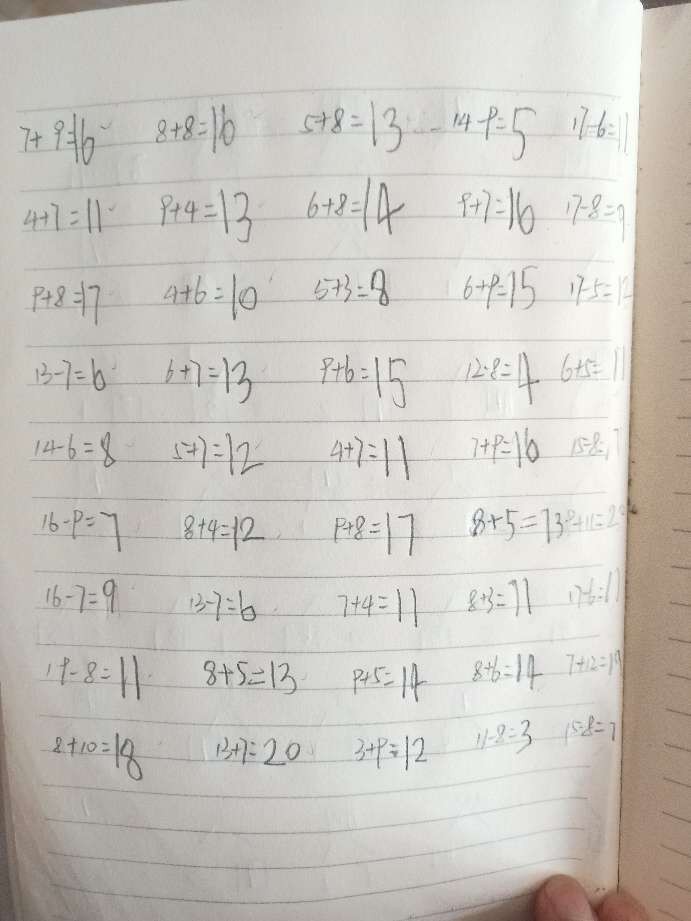 7+9=16 8+8=16 5+8=13 14-9=5 17-6=11
4+7=11 9+4=13 6+8=14 9+7=16 17-8=9
9+8=17 4+6=10 5+3=8 6+9=15 17-5=12
13-7=6 6+7=13 9+6=15 12-8=4 6+5=11
14-6=8 5+7=12 4+7=11 7+9=16 15-8=7
16-9=7 8+4=12 9+8=17 8+5=13 9+11=20
16-7=9 13-7=6 7+4=11 8+3=11 17-6=11
19-8=11 8+5=13 9+5=14 8+6=14 7+12=19
8+10=18 13+7=20 3+9=12 11-8=3 15-8=7